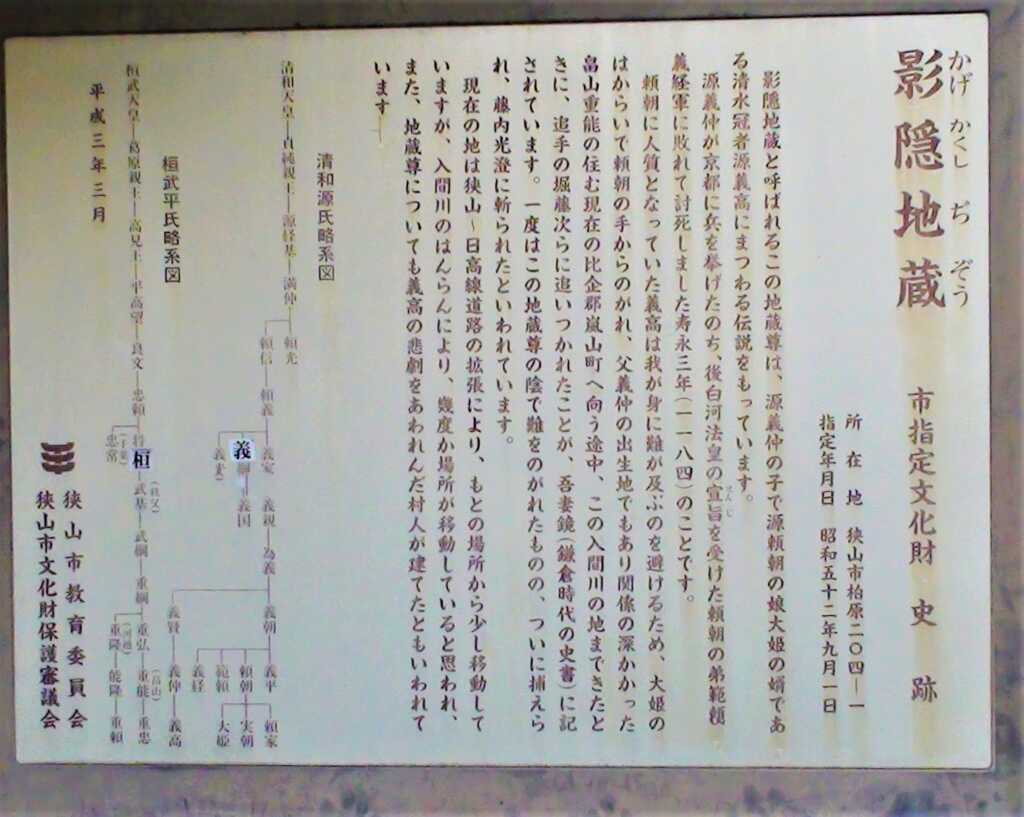 影隠地蔵
かげかくしぢぞう
市指定文化財　史　跡
所　在　地　狭山市柏原二〇四―一
指定年月日　昭和五十二年九月一日
影隠地蔵と呼ばれるこの地蔵尊は、源義仲の子で源頼朝の娘大姫の婿であ
る清水冠者源義高にまつわる伝説をもっています。
源義仲が京都に兵を挙げたのち、後白河法皇の宣旨を受けた頼朝の弟範頼
せんじ
義経軍に敗れて討死しました寿永三年(一一八四)のことです。
頼朝に人質となっていた義高は我が身に難が及ぶのを避けるため、大姫の
はからいで頼朝の手からのがれ、父義仲の出生地でもあり関係の深かかった
畠山重能の住む現在の比企郡嵐山町へ向う途中、この入間川の地まできたと
きに、追手の堀藤次らに追いつかれたことが、吾妻鏡(鎌倉時代の史書)に記
されています。一度はこの地蔵尊の陰で難をのがれたものの、ついに捕えら
れ、藤内光澄に斬られたといわれています。
現在の地は狭山～日高線道路の拡張により、もとの場所から少し移動して
いますが、入間川のはんらんにより、幾度か場所が移動していると思われ、
また、地蔵尊についても義高の悲劇をあわれんだ村人が建てたともいわれて
います
清和源氏略系図
清和天皇―貞純親王―源経基―満仲
頼光
頼信―頼義
義家　義親―為義
義　義国
義光
義朝
義賢　義仲　義高
義平
頼朝
範頼
義経
頼家
実朝
大姫
桓武平氏略系図
桓武天皇―葛原親王―高見王―平高望―良文―忠頼
将桓―武基―武綱―重綱
(秩父)
(千葉)
忠常
重弘　重能―重忠
(畠山)
(河越)
重隆―能隆―重頼
平成三年三月
狭山市教育委員会
狭山市文化財保護審議会